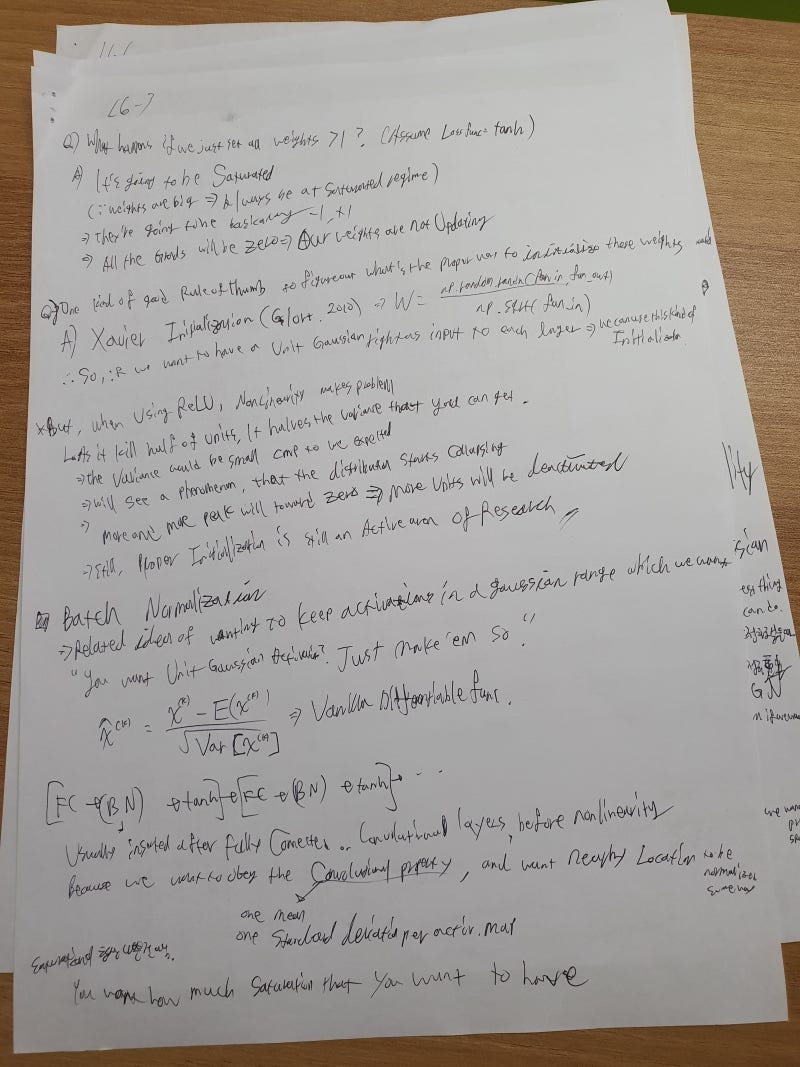 (6-)
Q) What happens if we just set all weights >1? (Assume Loss func = tanh)
A) It's going to be Saturated
(∵ weights are big ⇒ Always be at Saturated regime)
⇒ They're going to be basically -1, +1
⇒ All the Grads will be zero ⇒ Our weights are not Updating
Q) One kind of good Rule of thumb to figure out what's the proper way to initialize these weights
A) Xavier Initialization (Glort. 2010) ⇒ W = np.random.randn(fan_in, fan_out) / np.sqrt(fan_in)
∴ So, if we want to have a Unit Gaussian right as input to each layer ⇒ we can use this kind of
Initialization.
*But, when Using ReLU, Nonlinearity makes problem
As it kill half of units, It halves the variance that you can get.
⇒ the Variance would be small cmp to we expected
⇒ will see a phenomenon, that the distribution Starts Collapsing
⇒ more and more peak will toward zero ⇒ more Units will be deactivated
⇒ Still, Proper Initialization is still an Active area of Research
Batch Normalization
⇒ Related idea of wanting to keep activations in a gaussian range which we want
"You want Unit Gaussian Activation? Just make 'em so."
x̂^(k) = x^(k) - E(x^(k)) / √Var[x^(k)] ⇒ Vanilla Differentiable func.
[FC → (BN) → tanh] → [FC → (BN) → tanh] → ...
Usually inserted after fully Connected or Convolutional layers, before nonlinearity
Because we want to obey the Convolutional property, and want Nearby Location to be
normalized
same way
one mean
one Standard deviation per activ. map
You how much Saturation that you want to have
lity
sian
can do.
GN